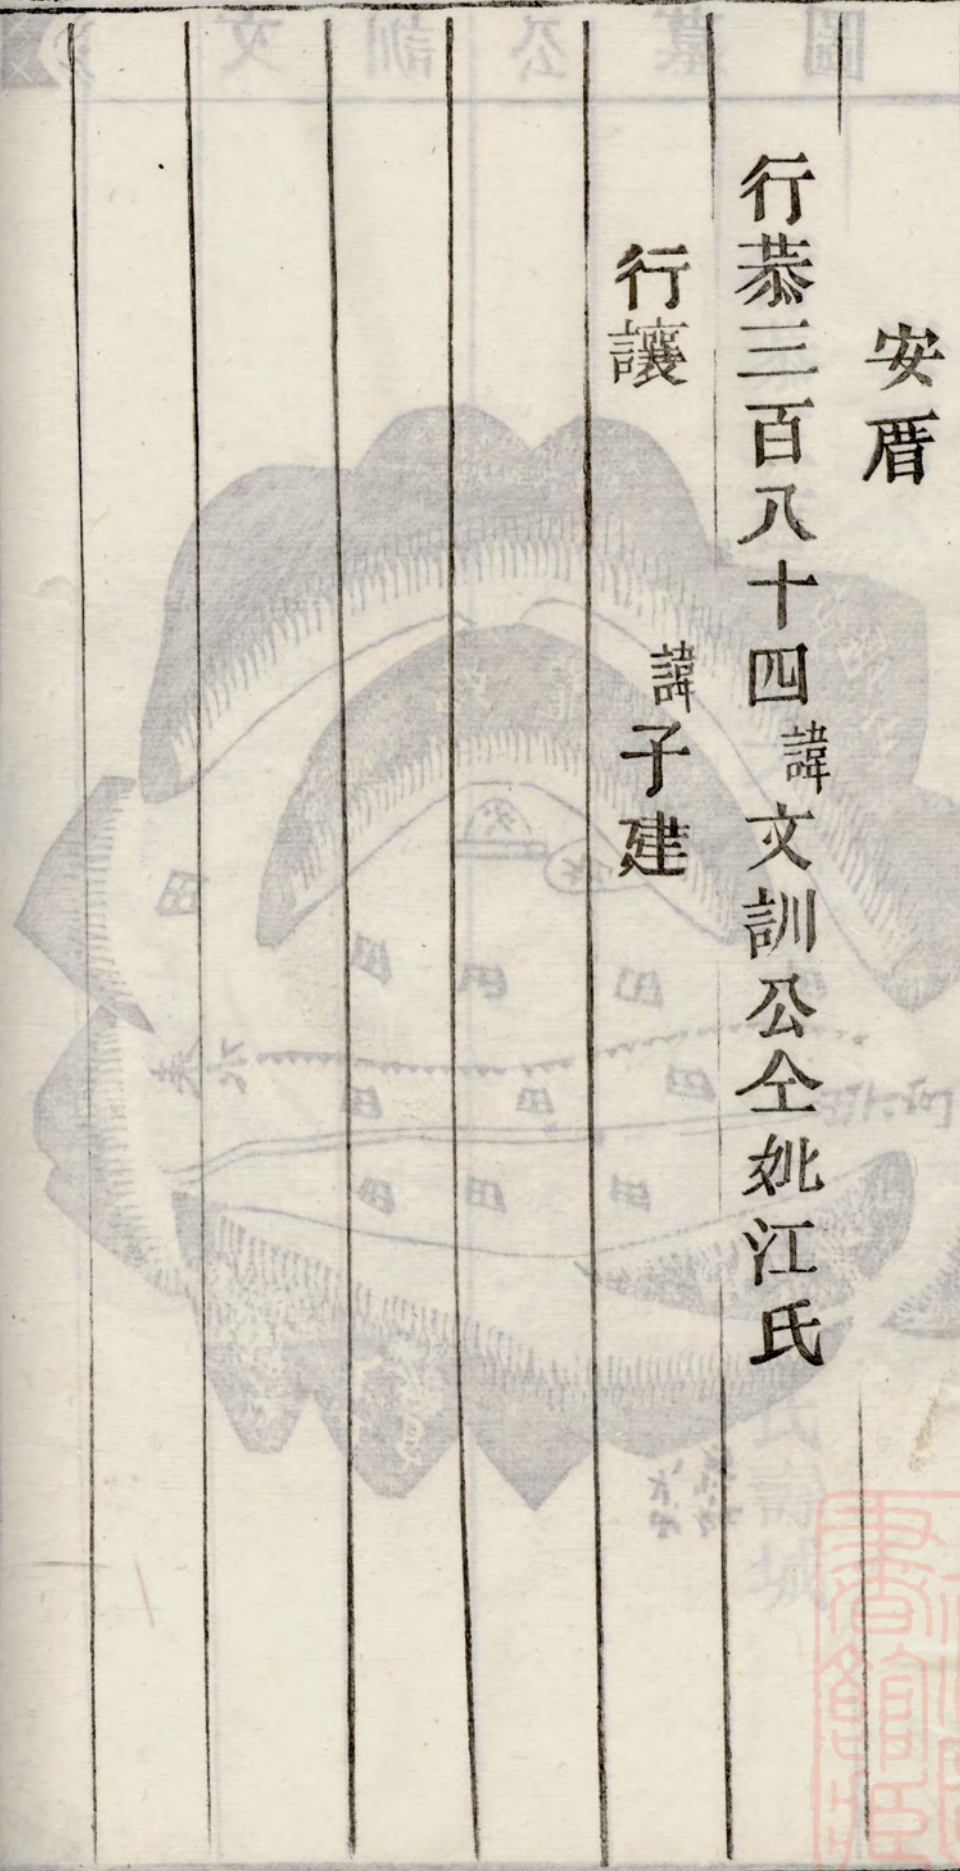 安厝
行恭三百八十四諱文訓公仝妣江氏
行讓 諱子建